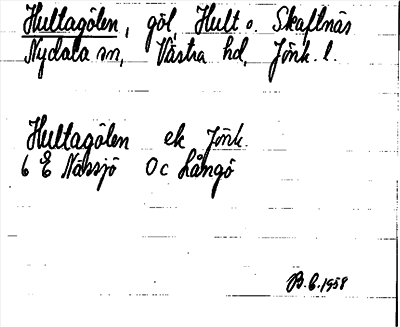 Hultagölen, göl, Hult o. Skaftnäs
Nydala sn, Västra hd, Jönk. l.
Hultagölen ek Jönk.
6 E Nässjö 0c Långö
B.G. 1958